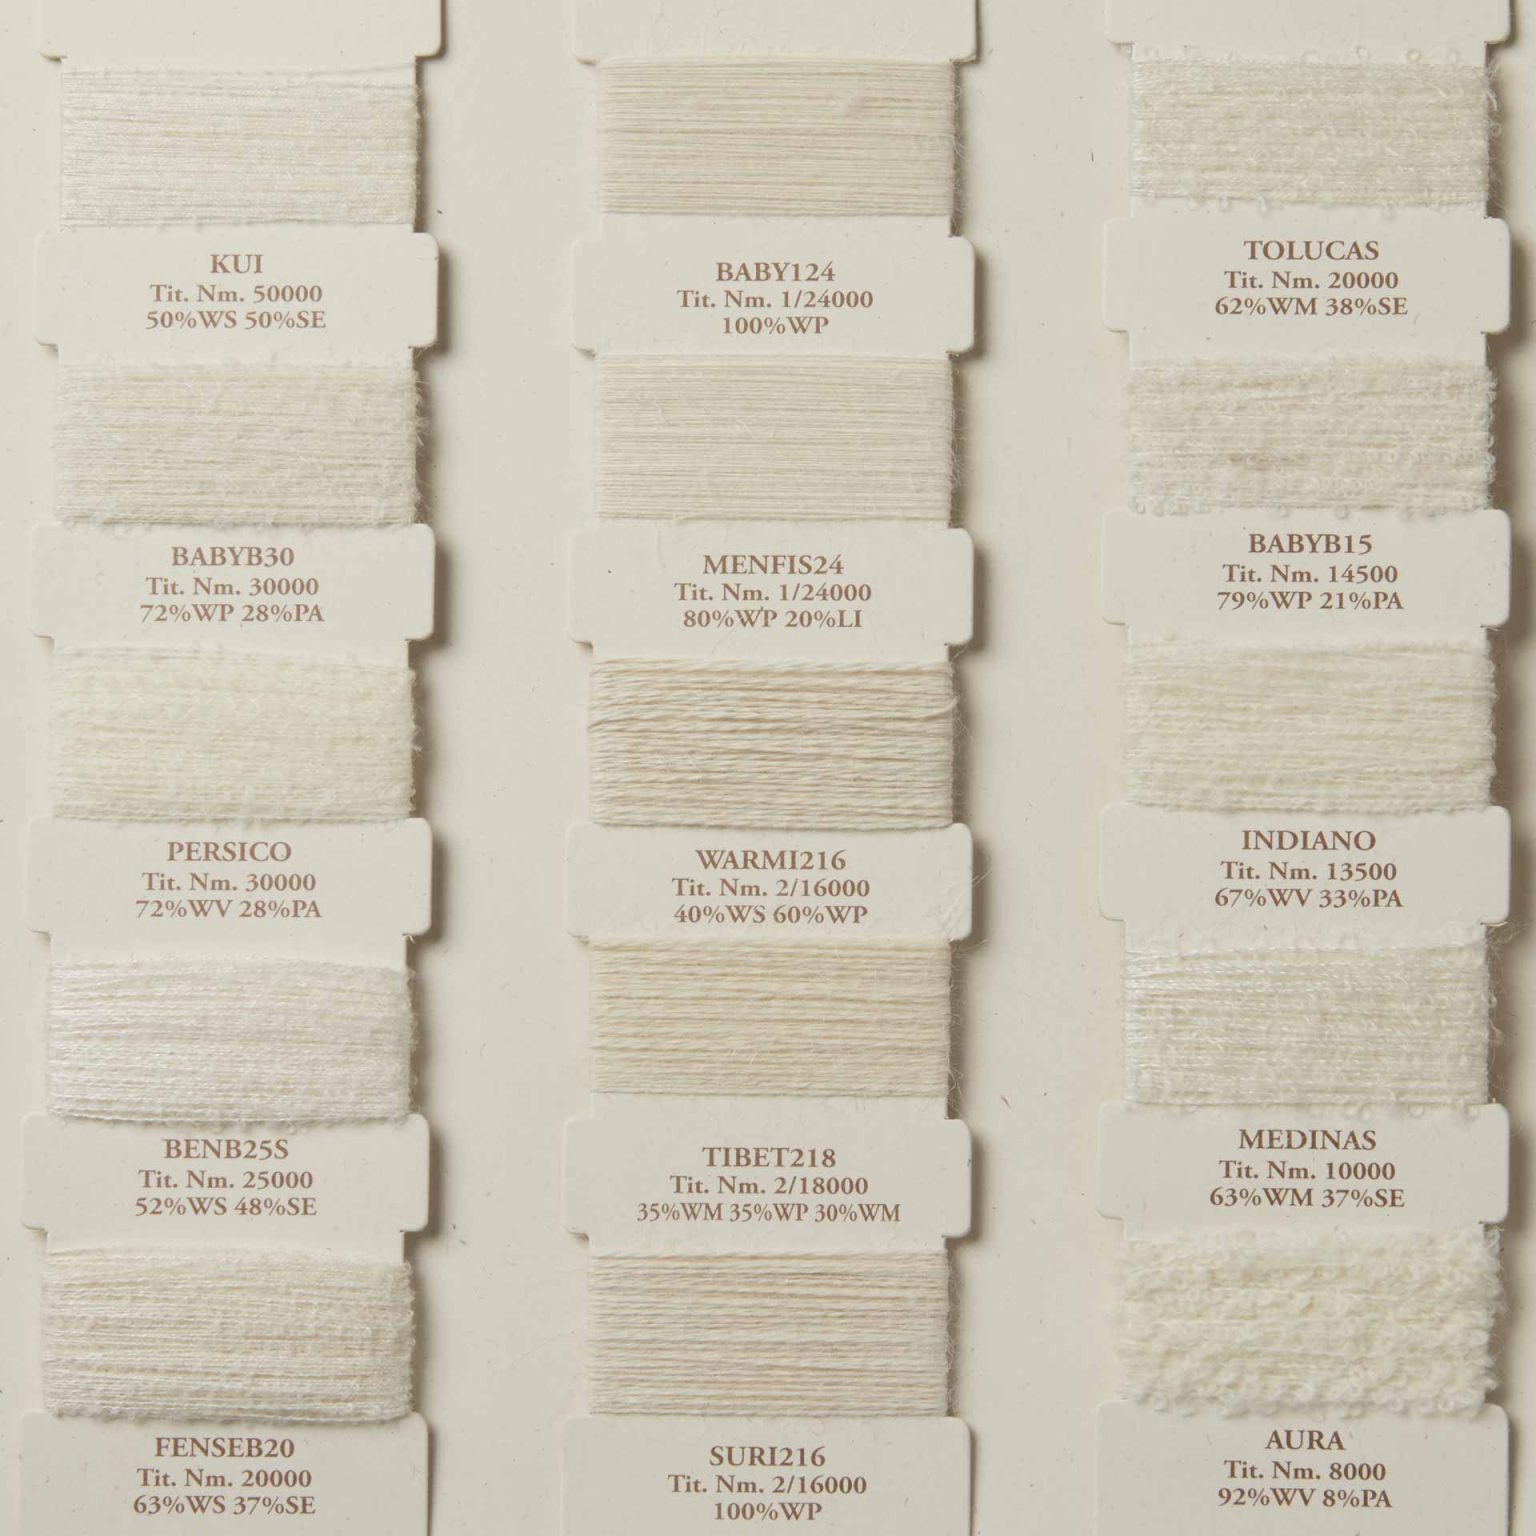 KUI
Tit. Nm. 50000
50%WS 50%SE
BABYB30
Tit. Nm. 30000
72%WP 28%PA
PERSICO
Tit. Nm. 30000
72%WV 28%PA
BENB25S
Tit. Nm. 25000
52%WS 48%SE
FENSEB20
Tit. Nm. 20000
63%WS 37%SE
BABY124
Tit. Nm. 1/24000
100%WP
MENFIS24
Tit. Nm. 1/24000
80%WP 20%LI
WARMI216
Tit. Nm. 2/16000
40%WS 60%WP
TIBET218
Tit. Nm. 2/18000
35%WM 35%WP 30%WM
SURI216
Tit. Nm. 2/16000
100%WP
TOLUCAS
Tit. Nm. 20000
62%WM 38%SE
BABYB15
Tit. Nm. 14500
79%WP 21%PA
INDIANO
Tit. Nm. 13500
67%WV 33%PA
MEDINAS
Tit. Nm. 10000
63%WM 37%SE
AURA
Tit. Nm. 8000
92%WV 8%PA